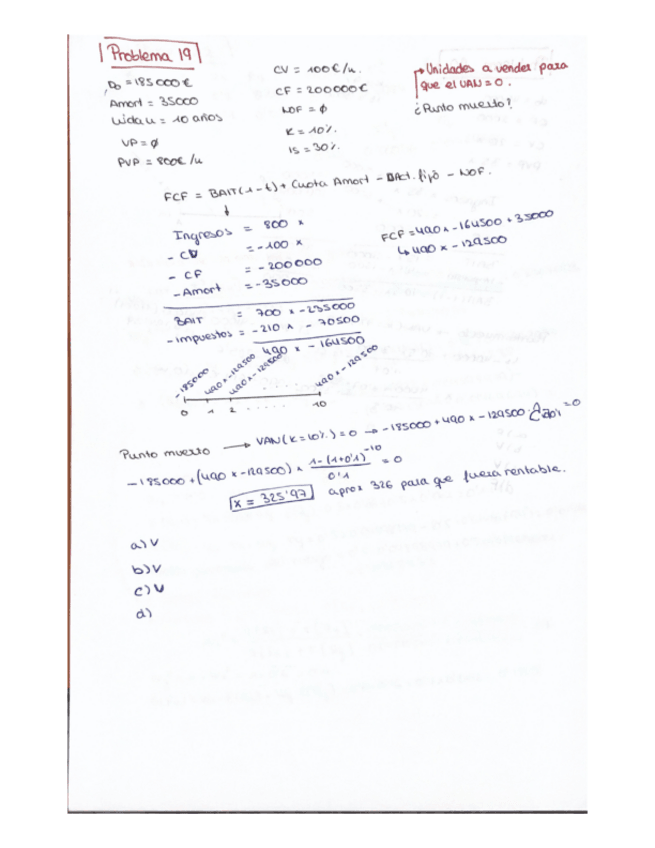 Problema 19
D₀ = 185000€
Amort = 35000
Vida u = 10 años
VP = ϕ
PVP = 800€/u
CV = 100€/u.
CF = 200000€
NOF = ϕ
K = 10%.
IS = 30%.
→ Unidades a vender para
que el VAN = 0.
¿Punto muerto?
FCF = BAIT(1-t) + Cuota Amort - Act. fijo - NOF.
↓
Ingresos = 800 x
- CV = -100 x
- CF = -200000
- Amort = -35000
BAIT = 700 x - 235000
- impuestos = -210 x - 70500
490 x - 164500
FCF = 490x - 164500 + 35000
↳ 490 x - 129500
-185000 490x-129500 490x-129500 ..... 490x-129500
0 1 2 ..... 10
Punto muerto → VAN(K=10%.) = 0 → -185000 + 490x - 129500· = 0
-185000 + (490 x - 129500) x 1-(1+0'1)^-10 / 0'1 = 0
x = 325'97 aprox 326 para que fuera rentable.
a) V
b) V
c) V
d)